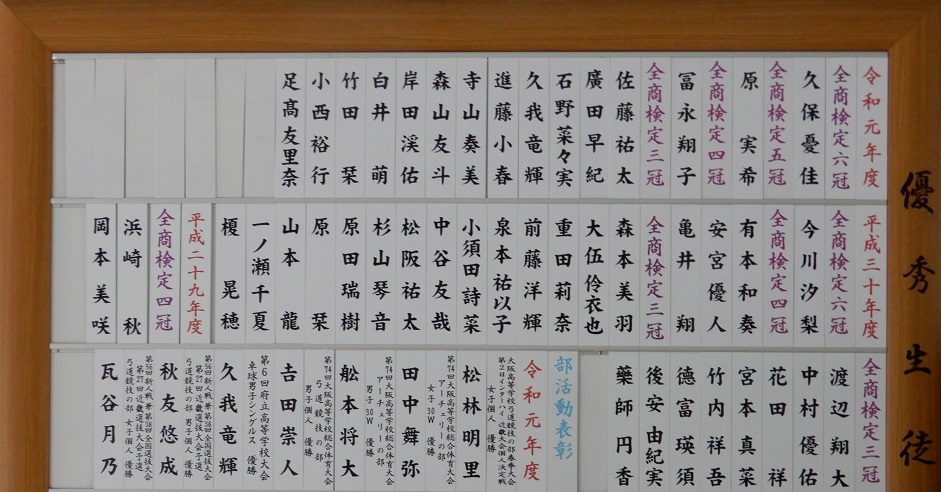 優秀生徒
令和元年度
全商検定六冠
久保憂佳
全商検定五冠
原実希
全商検定四冠
冨永翔子
全商検定三冠
佐藤祐太
廣田早紀
石野菜々実
久我竜輝
進藤小春
寺山奏美
森山友斗
岸田渓佑
白井萌
竹田栞
小西裕行
足髙友里奈
平成三十年度
全商検定六冠
今川汐梨
全商検定四冠
有本和奏
安宮優人
亀井翔
全商検定三冠
森本美羽
大伍伶衣也
重田莉奈
前藤洋輝
泉本祐以子
小須田詩菜
中谷友哉
松阪祐太
杉山琴音
原田瑞樹
原栞
山本龍
一ノ瀬千夏
榎晃穂
平成二十九年度
全商検定四冠
浜崎秋
岡本美咲
全商検定三冠
渡辺翔大
中村優佑
花田祥
宮本真菜
竹内祥吾
德富瑛須
後安由紀実
藥師円香
部活動表彰
令和元年度
大阪高等学校弓道競技の部春季大会
第2日インターハイ近畿大会個人決定戦
女子個人 優勝
松林明里
第74回大阪高等学校総合体育大会
アーチェリーの部
女子 30W 優勝
田中舞弥
第74回大阪高等学校総合体育大会
アーチェリーの部
男子 30W 優勝
舩本将大
第74回大阪高等学校総合体育大会
弓道競技の部
男子個人 優勝
吉田崇人
第6回府立高等学校大会
卓球男子シングルス 優勝
久我竜輝
第56回新人戦兼第38回全国選抜大会
第27回近畿選抜大会予選
弓道競技の部 男子個人 優勝
秋友悠成
第56回新人戦兼第38回全国選抜大会
第27回近畿選抜大会予選
弓道競技の部 女子個人 優勝
瓦谷月乃